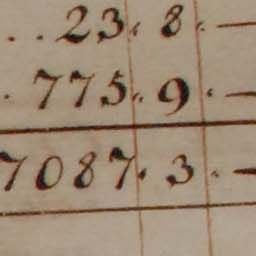 ..23.8.—
.775.9.—
7087.3.—